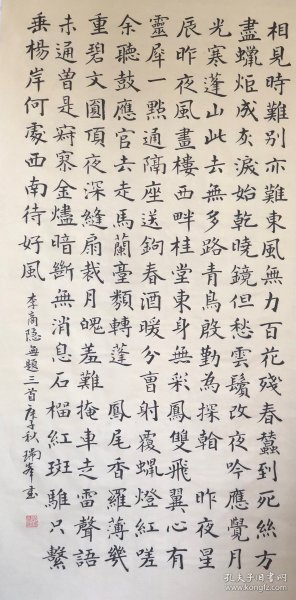 相見時難別亦難東風無力百花殘春蠶到死絲方
盡蠟炬成灰淚始乾曉鏡但愁雲鬢改夜吟應覺月
光寒蓬山此去無多路青鳥殷勤為探看 昨夜星
辰昨夜風畫樓西畔桂堂東身無彩鳳雙飛翼心有
靈犀一點通隔座送鉤春酒暖分曹射覆蠟燈紅嗟
余聽鼓應官去走馬蘭臺類轉蓬 鳳尾香羅薄幾
重碧文圓頂夜深縫扇裁月魄羞難掩車走雷聲語
未通曾是寂寥金燼暗斷無消息石榴紅斑騅只繫
垂楊岸何處西南待好風 李商隱無題三首庚子秋瑞書